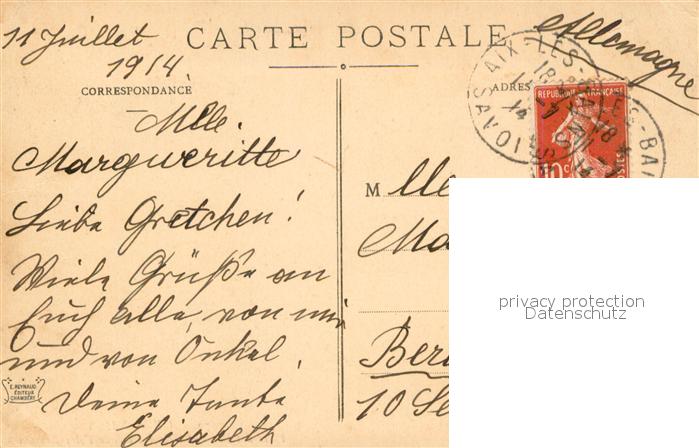 11 Juillet
1914.
CARTE POSTALE
Allemagne
CORRESPONDANCE
ADRES
AIX-LES-BAINS
SAVOIE
REPUBLIQUE FRANÇAISE
POSTES
10c
Mlle.
Margueritte
Liebe Gretchen!
Viele Grüße an
Euch alle, von mir
und von Onkel.
Deine Tante
Elisabeth
E. REYNAUD
ÉDITEUR
CHAMBÉRY
Mlle
Ma
Ber
10 Se
privacy protection
Datenschutz